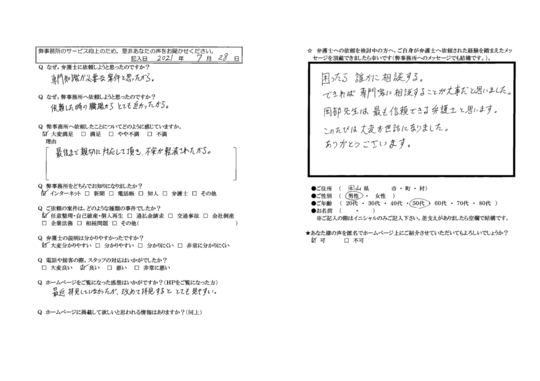 弊事務所のサービス向上のため、是非あなたの声をお聞かせください。
記入日 2021 年 7 月 28 日
Q なぜ、弁護士に依頼しようと思ったのですか?
専門知識が必要な案件と思ったから。
Q なぜ、弊事務所へ依頼しようと思ったのですか?
依頼した時の職員からとても良かったから。
Q 弊事務所へ依頼したことについてどのように感じていますか。
☑ 大変満足 □ 満足 □ やや不満 □ 不満
理由
最後まで親切に対応して頂き、不安が軽減されたから。
Q 弊事務所をどちらでお知りになりましたか?
☑ インターネット □ 新聞 □ 電話帳 □ 知人 □ 弁護士 □ その他
Q ご依頼の案件は、どのような種類の事件でしたか?
☑ 任意整理・自己破産・個人再生 □ 過払金請求 □ 交通事故 □ 会社倒産
□ 企業法務 □ 相続問題 □ その他( )
Q 弁護士の説明は分かりやすかったですか?
☑ 大変分かりやすい □ 分かりやすい □ 分かりにくい □ 非常に分かりにくい
Q 電話や接客の際、スタッフの対応はいかがでしたか?
□ 大変良い ☑ 良い □ 悪い □ 非常に悪い
Q ホームページをご覧になった感想はいかがですか?(HPをご覧になった方)
最近拝見していなかったが、改めて拝見するととても見やすい。
Q ホームページに掲載して欲しいと思われる情報はありますか?(同上)
☆ 弁護士への依頼を検討中の方へ、ご自身が弁護士へ依頼された経験を踏まえたメッ
セージを頂戴できましたら幸いです(弊事務所へのメッセージでも結構です。)。
困ったら誰かに相談する。
できれば専門家に相談することが大事だと思いました。
岡部先生は最も信頼できる弁護士と思います。
このたびは大変お世話になりました。
ありがとうございます。
●ご住所 ( 山県 市・町・村)
●ご性別 ( 男性 ・ 女性 )
●ご年齢 ( 20代 ・ 30代 ・ 40代 ・ 50代 ・ 60代 ・ 70代 ・ 80代 )
●お名前 ( ・ )
※ご記入の際はイニシャルのみご記入下さい。差支えがありましたら空欄で結構です。
★あなた様の声を匿名でホームページ上にご紹介させていただいてもよろしいでしょうか?
☑ 可 □ 不可